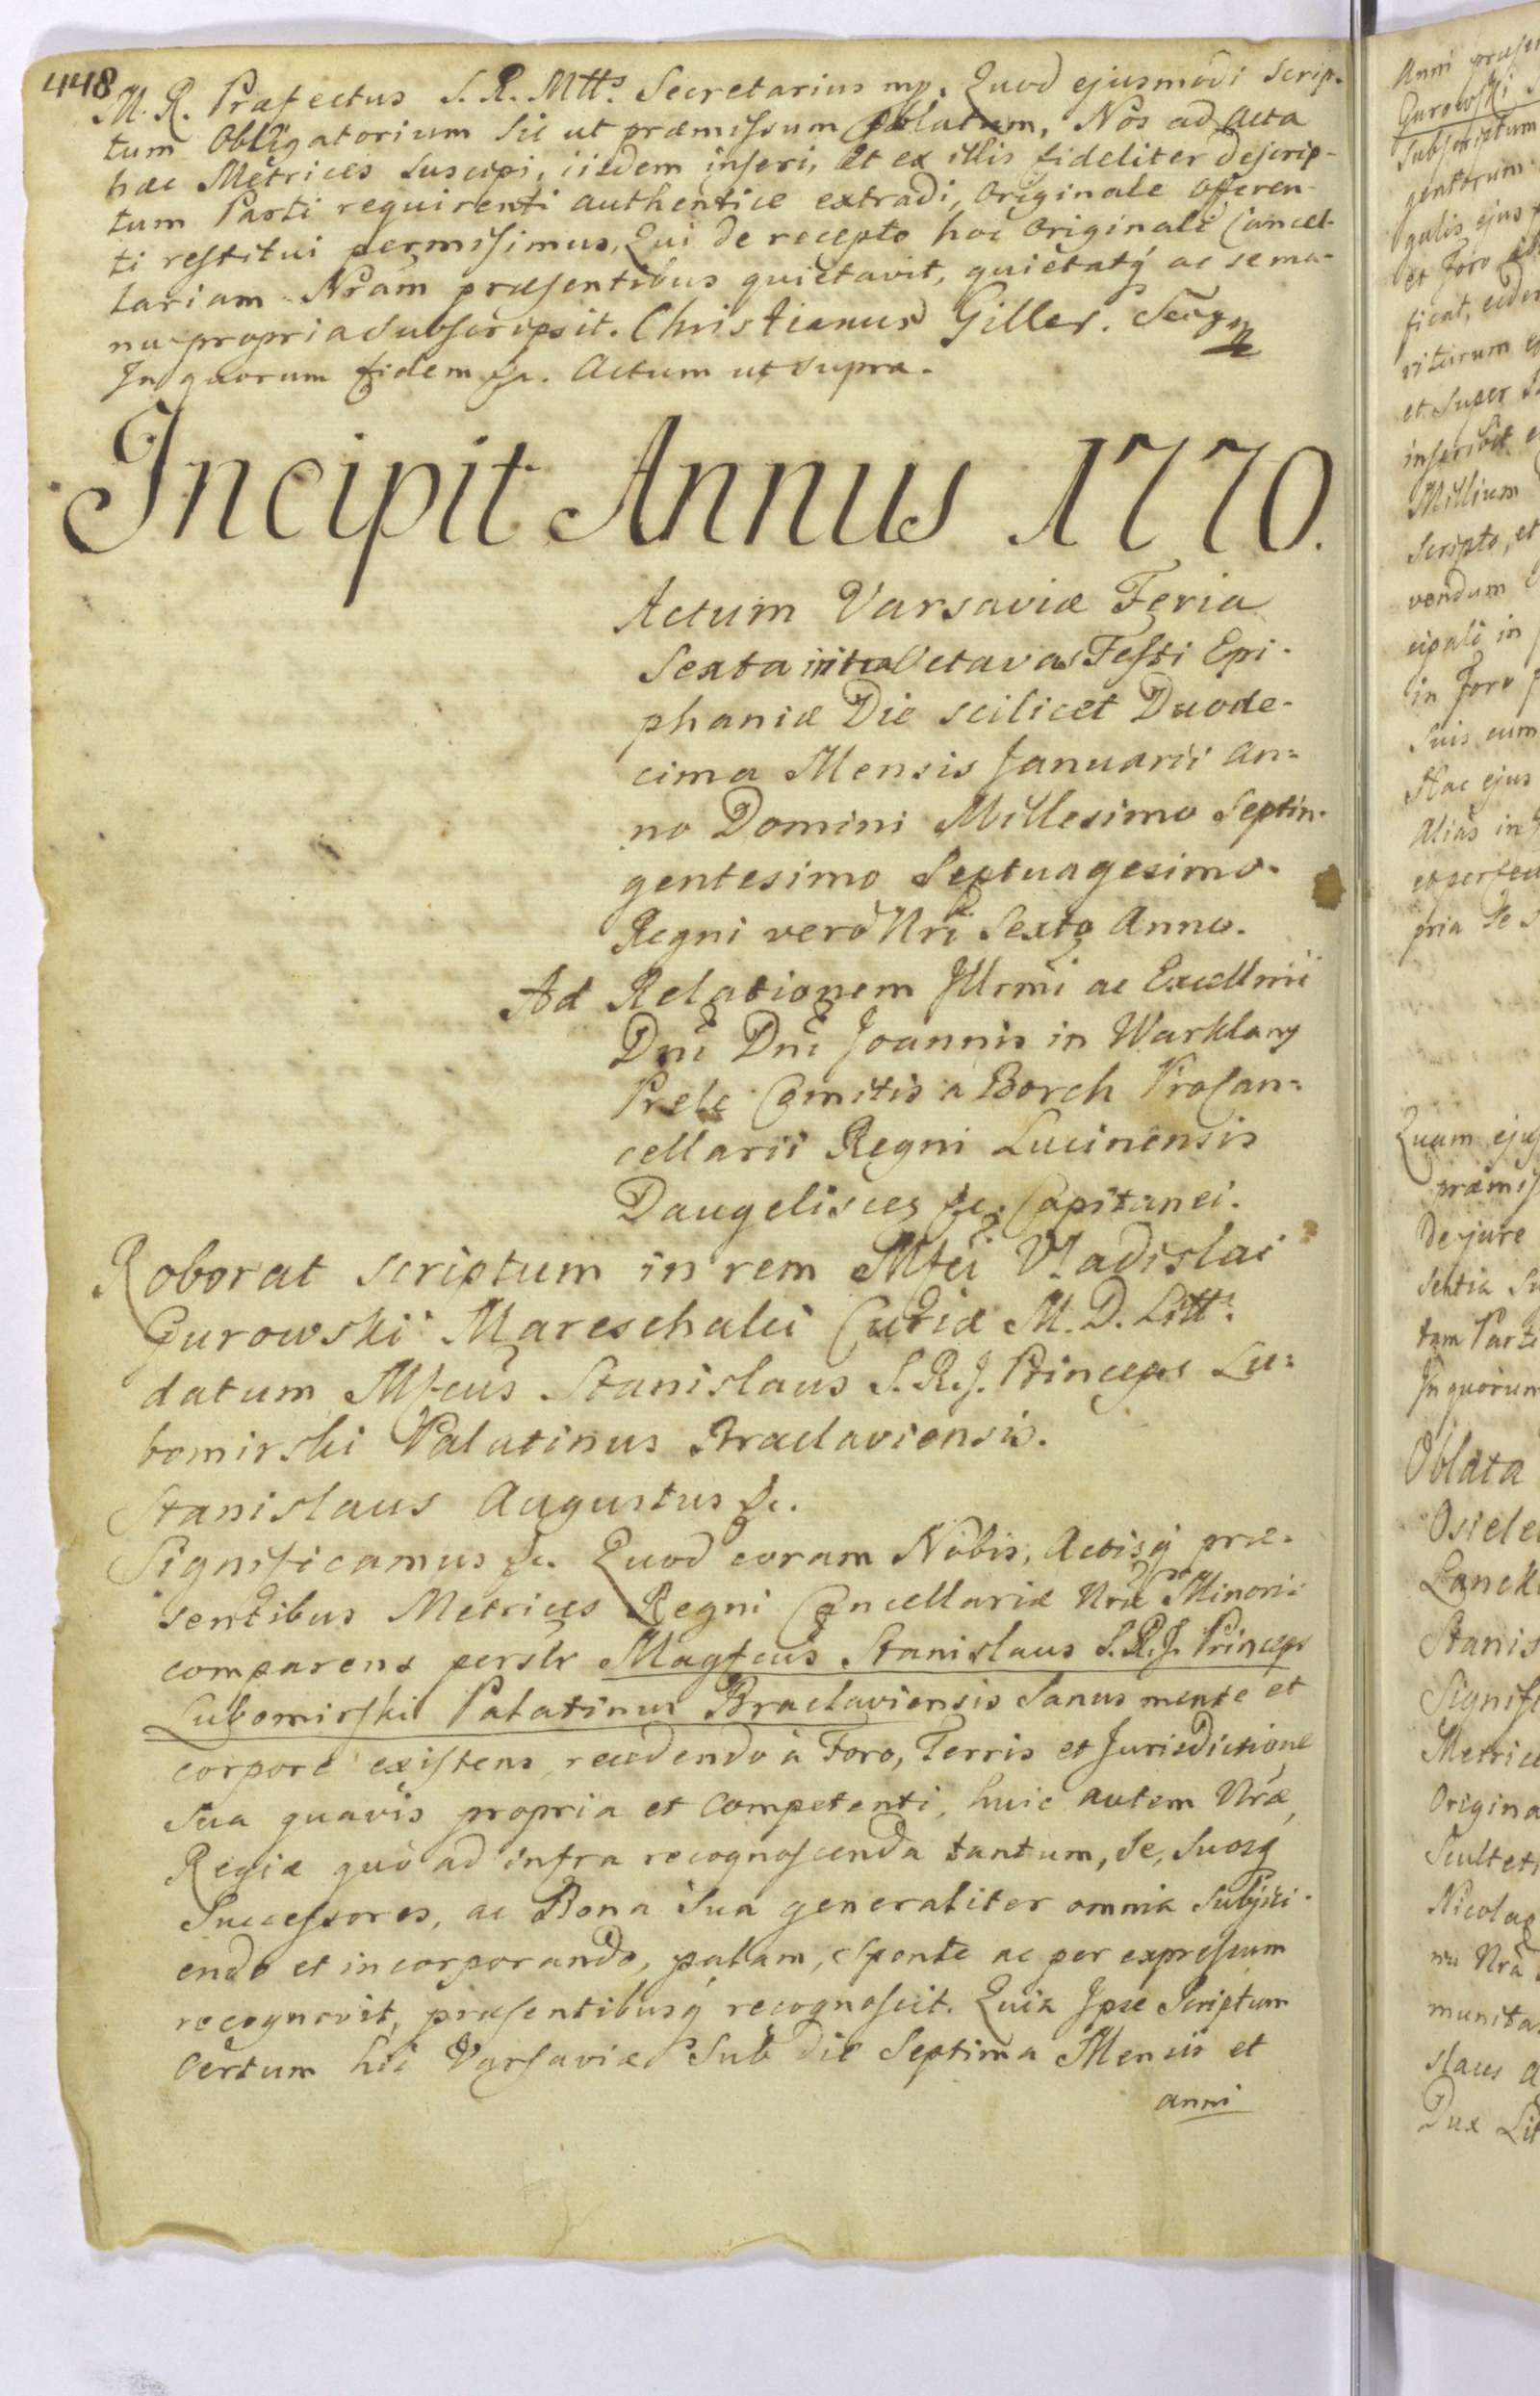 448
M. R. Præfectus S. R. Mtts. Secretarius mp. Quod ejusmodi Scrip-
tum Obligatorium Sic ut præmissum Oblatum, Nos ad Acta
hæc Metrices suscipi, iisdem inseri, Et ex illis fideliter descrip-
tum Parti requirenti authentice extradi, Originale Offeren-
ti restitui permisimus, Qui de recepto hoc Originali Cancel-
lariam Nram præsentibus quietavit, quietatq ac se ma-
nu propria subscripsit. Christianus Giller.
In quorum fidem &c. Actum ut supra.
Incipit Annus 1770.
Actum Varsaviæ Feria
Sexta intra Octavas Festi Epi-
phaniæ Die scilicet Duode-
cima Mensis Januarii An=
no Domini Millesimo Septin-
gentesimo Septuagesimo.
Regni verò Nri Sexto Anno.
Ad Relationem Illrmi ac Excellmi
Dni Dni Joannis in Warklany
Prele Comitis à Borch ProCan=
cellarii Regni Lucinensis
Daugelisces &c. Capitanei.
Roborat scriptum in rem Mfci Vladislai
Gurowski Mareschalci Curiæ M. D. Litt.
datum Mfcus Stanislaus S. R. J. Princeps Lu=
bomirski Palatinus Braclaviensis.
Stanislaus Augustus &c.
Significamus &c. Quod coram Nobis, Actisq præ-
sentibus Metrices Regni Cancellariæ Nræ Minoris
comparens persлr Magfcus Stanislaus S. R. J. Princeps
Lubomirski Palatinus Braclaviensis Sanus mente et
corpore existens, recedendo à Foro, Terris et Jurisdictione
Sua quavis propria et competenti, huic autem Nræ
Regiæ quò ad infra recognoscenda tantum, Se, Suosq
Successores, ac Bona Sua generaliter omnia Subjici-
endo et incorporando, palam, sponte ac per expressum
recognovit, præsentibusq recognoscit. Quia Ipse Scriptum
Certum hic Varsaviæ Sub die Septima Mensis et
anni
Anni
Gurowski
Subscriptum
gentorum
galis ejus
et Foro
ficat,
et Super
Millium
Scripto, et
vendum
cipali in
in Foro
Suis cum
Hac ejus
Alias in
pria Se
Quam
De jure
tam Parti
In quorum
Oblata
Stanis
Signifi
Metrice
Origina
Scultet
Nicolae
nu Nra
munita
slaus
Dux Lit